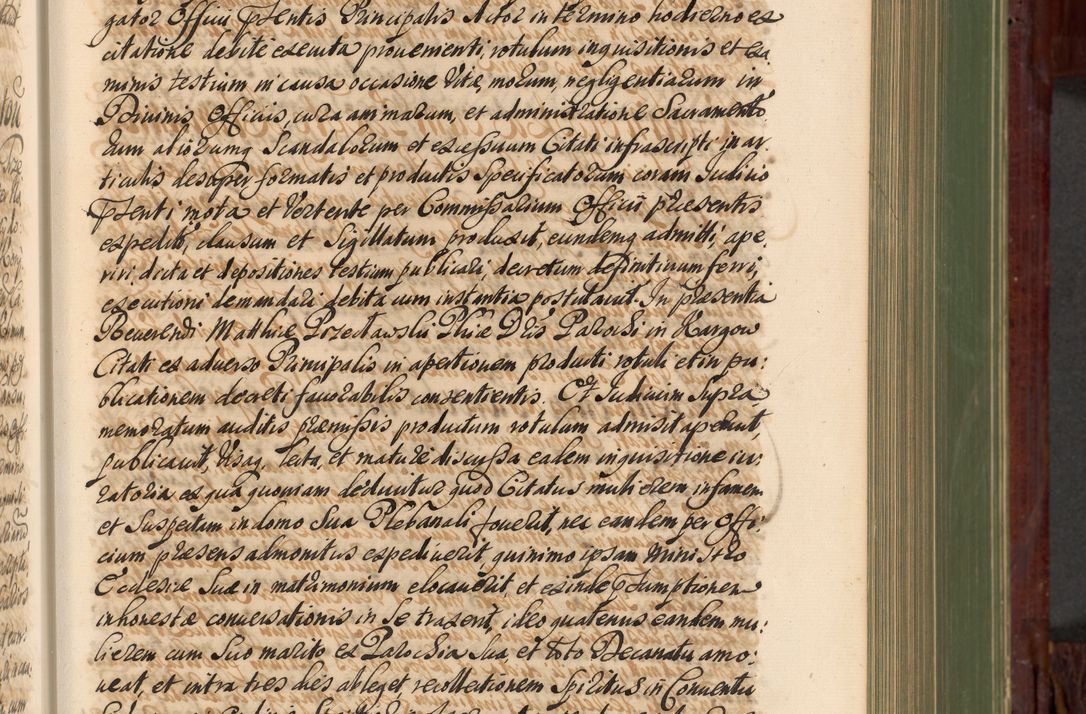 gator Officii Pntis Principalis Actor in termino hodierno ex
citatione debite executa provenienti, rotulum inquisitionis et exa
minis testium in causa occasione Vitæ, morum, negligentiarum in
Divinis Officiis, cura animarum, et administratione Sacramento
rum aliorumq Scandalorum et excessuum Citati infrascripti in ar.
ticulis desuper formatis et productis Specificatorum coram Iudicio
Pntenti mota et Vertente per Commissarium Officii præsentis
expedit, clausum et Sigillatum produxit, eundemq admitti, ape,
riri, dicta et depositiones testium publicari, decretum definitivum ferri,
executioni demandari debita cum instantia postulavit. In præsentia
Reverendi Matthiæ Przecławski Phiæ Dris Parochi in Kargow
Citati ex adverso Principalis in apertionem producti rotuli et in pu:
blicationem decreti favorabilis consentientis. Et Iudicium Supra
memoratum auditis præmissis productum rotulum admisit aperuit,
publicavit, Visaq lecta, et mature discussa eadem inquisitione iu:
ratoria ex qua quoniam deducitur quod Citatus mulierem infamem
et Suspectam in domo Sua Plebanali foverit, nec eandem per offi:
cium præsens admonitus expediverit, quinimo ipsam Ministro
Ecclesiæ Suæ in matrimonium elocaverit, et exinde Psumptionem
inhonestæ conversationis in Se traxerit, ideo quatenus eandem mu:
lierem cum Suo marito ex Parochia Sua, et toto Decanatu amo:
veat, et intra tres dies ableget, recollectionem Spiritus in Conventu